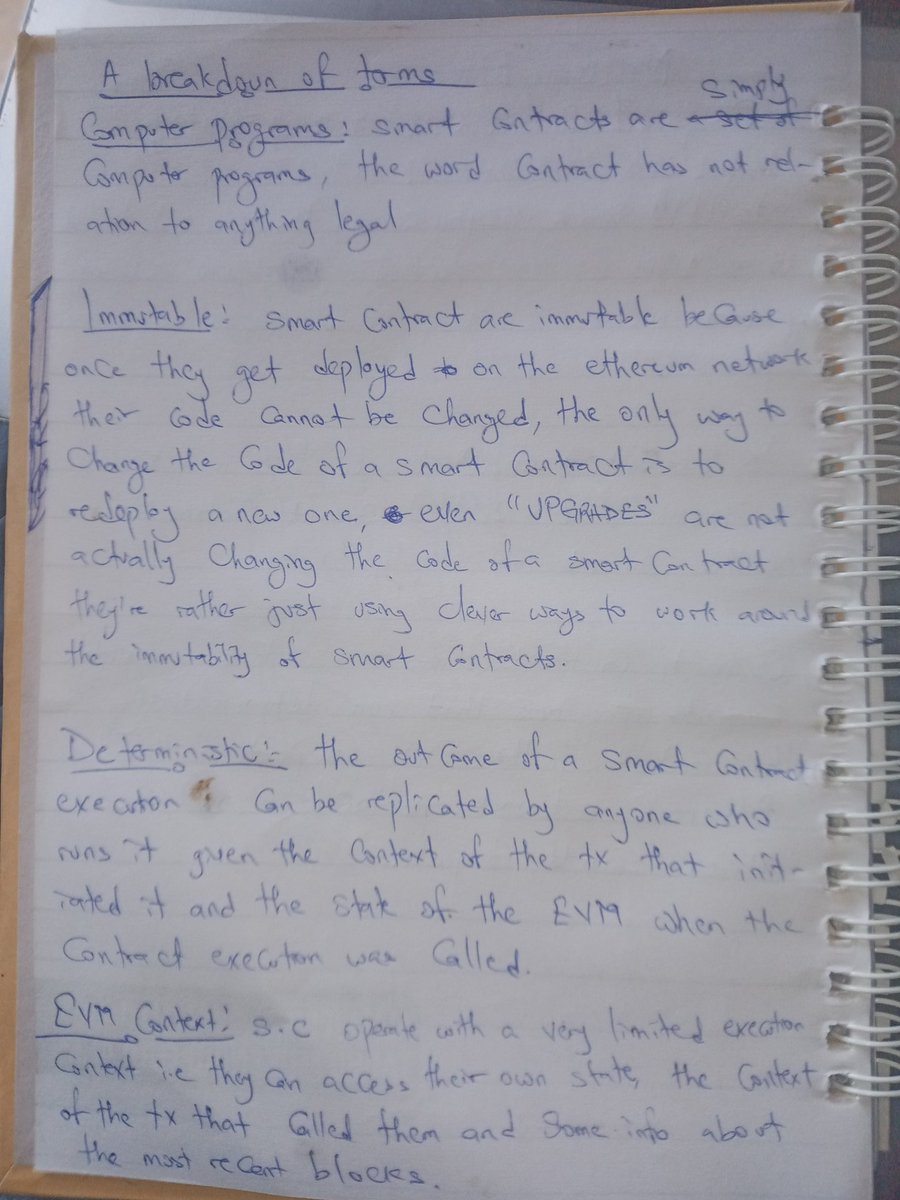 A breakdown of terms
Computer programs: smart Contracts are simply
Computer programs, the word Contract has not rel-
ation to anything legal
Immutable: smart Contract are immutable because
once they get deployed on the ethereum network
their Code Cannot be Changed, the only way to
Change the Code of a smart Contract is to
redeploy a new one, even "UPGRADES" are not
actually Changing the Code of a smart Contract
they're rather just using Clever ways to work around
the immutability of smart Contracts.
Deterministic:- the out Come of a smart Contract
execution Can be replicated by anyone who
runs it given the Context of the tx that init-
iated it and the state of the EVM when the
Contract execution was Called.
EVM Context: s.c operate with a very limited execution
Context i.e they Can access their own state, the Context
of the tx that Called them and Some info about
the most recent blocks.